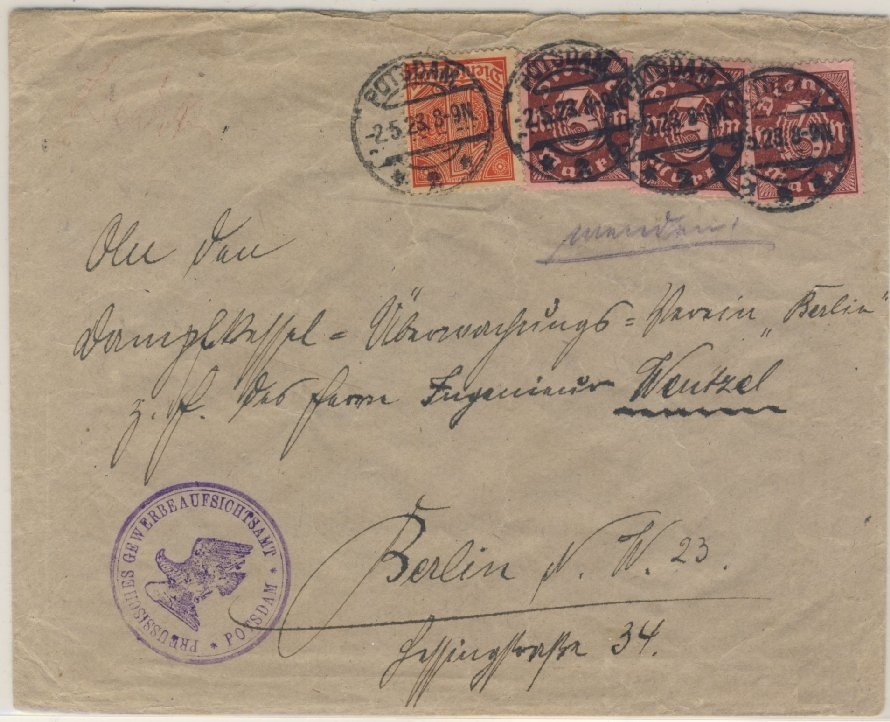 POTSDAM
-2.5.23. 8-9N.
POTSDAM
-2.5.23. 8-9N.
POTSDAM
5.23. 8-9N.
5.23. 8-9N.
wenden.
An den
Dampfkessel=Überwachungs=Verein „Berlin“
z. H. des Herrn Ingenieur Wentzel
PREUSSISCHES GEWERBEAUFSICHTSAMT * POTSDAM *
Berlin N. W. 23.
Lessingstraße 34.